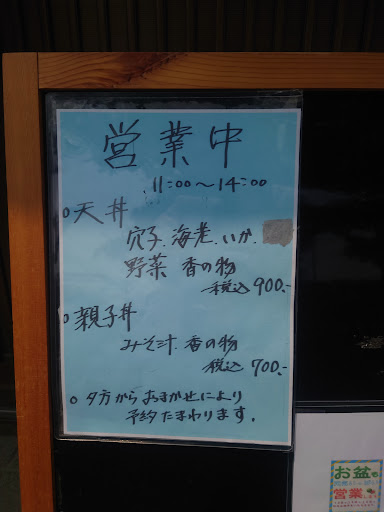 営業中
11:00〜14:00
○天丼
穴子.海老.いか.
野菜 香の物
税込 900.-
○親子丼
みそ汁.香の物
税込 700.-
○夕方からおまかせにより
予約たまわります.
お盆も
営業